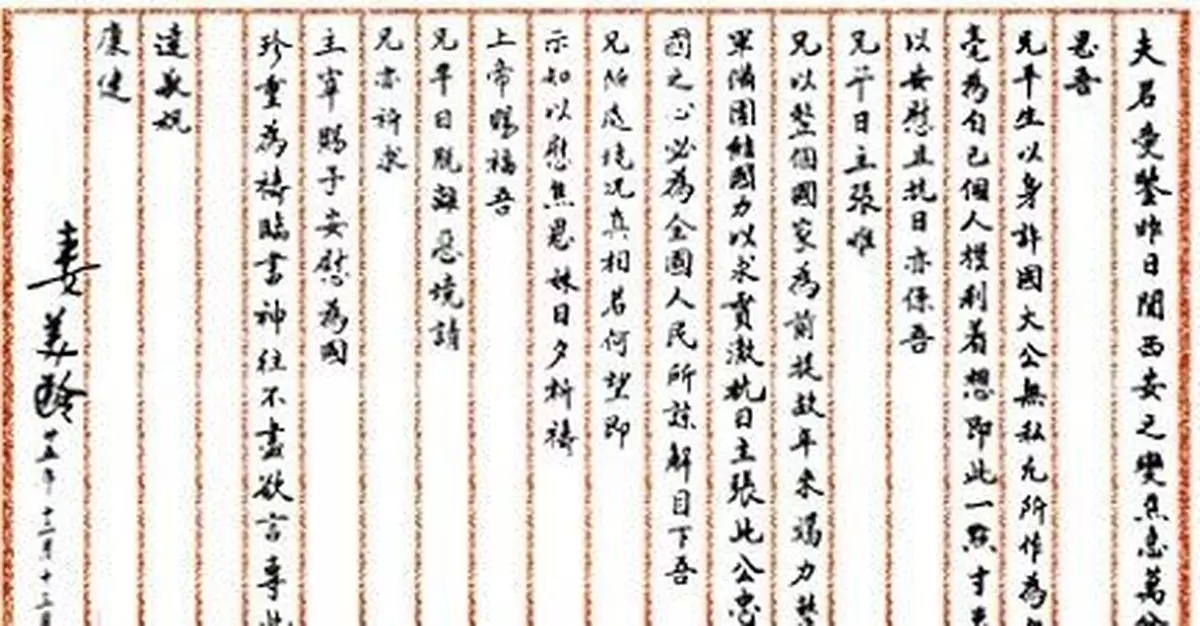 夫君愛鑒昨日聞西安之變焦急萬
思吾
兄平生以身許國大公無私凡所作為
毫為自己個人權利着想即此一點寸
以安慰且抗日亦係吾
兄平日主張唯
兄以整個國家為前提故年來竭力整
軍備團結國力以求貫澈抗日主張此公忠
國之心必為全國人民所諒解目下吾
兄所處境况真相若何望即
示知以慰焦思妹日夕祈禱
上帝賜福吾
兄早日脫離惡境請
兄亦許求
主宰賜予安慰為國
珍重為禱臨書神往不盡欲言專此
達敬祝
康健
妻美齡廿五年十二月十三